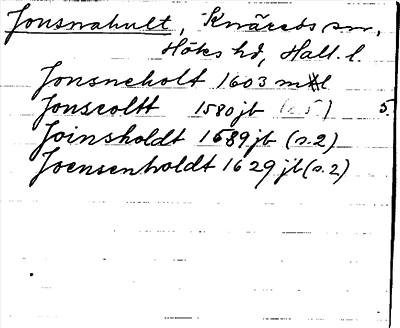 Jonsnahult, Knäreds sn,
Höks hd, Hall. l.
Jonsneholt 1603 mtl
Jonscoltt 1580 jb (s. 5) 5.
Joinsholdt 1689 jb (s. 2)
Joensenholdt 1629 jb (s. 2)